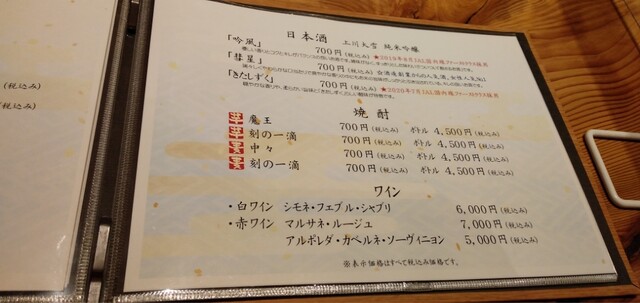 (税込み)
(税込み)
日本酒 上川大雪 純米吟醸
「吟風」 700円(税込み) ★2019年6月JAL国内線ファーストクラス採用
「彗星」 700円(税込み)
「きたしずく」 700円(税込み) ★2020年2月JAL国内線ファーストクラス採用
焼酎
芋 魔王 700円(税込み) ボトル 4,500円(税込み)
芋 刻の一滴 700円(税込み) ボトル 4,500円(税込み)
麦 中々 700円(税込み) ボトル 4,500円(税込み)
麦 刻の一滴 700円(税込み) ボトル 4,500円(税込み)
ワイン
・白ワイン シモネ・フェブル・シャブリ 6,000円(税込み)
・赤ワイン マルサネ・ルージュ 7,000円(税込み)
アルボレダ・カベルネ・ソーヴィニヨン 5,000円(税込み)
※表示価格はすべて税込み価格です。